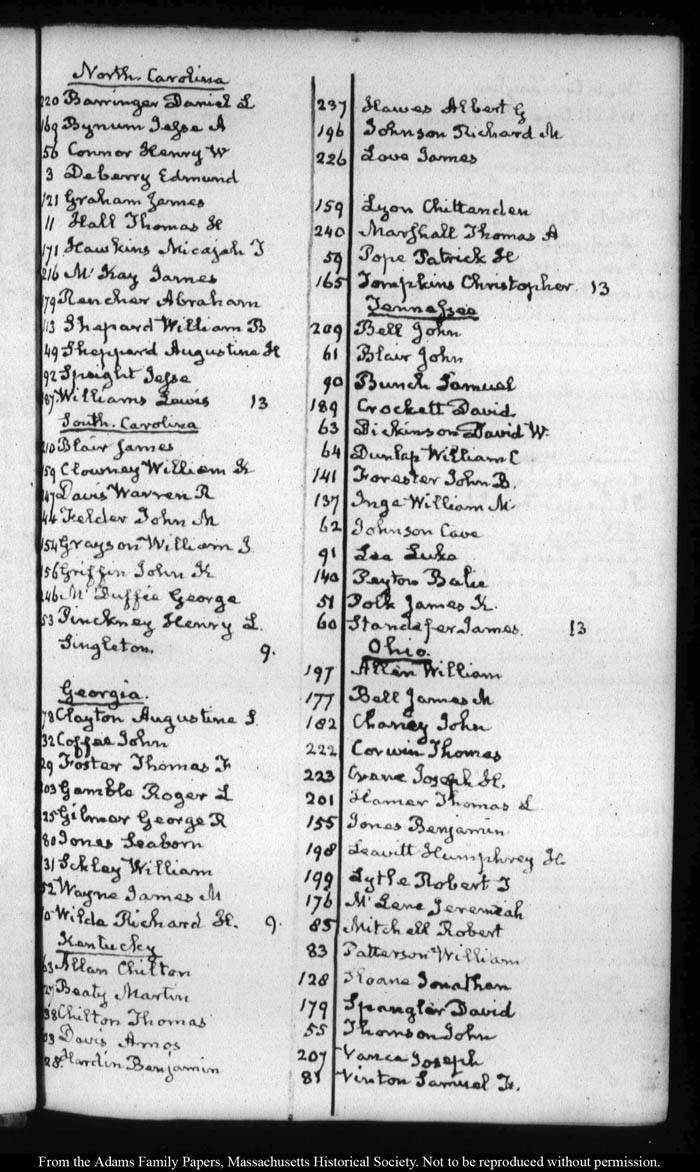 North. Carolina
220 Barringer Daniel L
169 Bynum Jesse A
56 Connor Henry W
3 Deberry Edmund
121 Graham James
11 Hall Thomas H
171 Hawkins Micajah T
216 Mc Kay James
179 Rencher Abraham
113 Shepard William B
49 Sheppard Augustine H
92 Speight Jesse
87. Williams Lewis 13
South. Carolina
210 Blair James
59 Clowney William K
47 Davis Warren R
44 Felder John M
154 Grayson William J.
156 Griffin John K
246 Mc Duffie George
53 Pinckney Henry L.
Singleton. 9.
Georgia.
78 Clayton Augustine S.
32 Coffee John
29 Foster Thomas F
203 Gamble Roger L
25 Gilmer George R
80 Jones Seaborn
31 Schley William
52 Wayne James M
0 Wilde Richard H. 9.
Kentucky
63 Allan Chilton
27 Beaty Martin
38 Chilton Thomas
03 Davis Amos
28. Hardin Benjamin
237 Hawes Albert G
196 Johnson Richard M
226 Love James
159 Lyon Chittenden
240 Marshall Thomas A
59 Pope Patrick H
165 Tompkins Christopher 13
Tennessee
209 Bell John
61 Blair John
90 Bunch Samuel
189 Crockett David
63 Dickinson David W.
64 Dunlap William C
141 Forester John B.
137 Inge William M.
62 Johnson Cave
91 Lea Luke
140 Peyton Balie
51 Polk James K.
60 Standefer James. 13
Ohio.
197 Allen William
177 Bell James M
182 Chaney John
222 Corwin Thomas
223 Crane Joseph H.
201 Hamer Thomas L
155 Jones Benjamin
198 Leavitt Humphrey H.
199 Lytle Robert T
176 Mc Lene Jeremiah
85 Mitchell Robert
83 Patterson William
128 Sloane Jonathan
179 Spangler David
55 Thomson John
207 Vance Joseph
81 Vinton Samuel F.
From the Adams Family Papers, Massachusetts Historical Society. Not to be reproduced without permission.